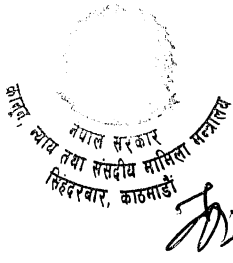 नेपाल सरकार
कानून, न्याय तथा संसदीय मामिला मन्त्रालय
सिंहदरबार, काठमाडौं